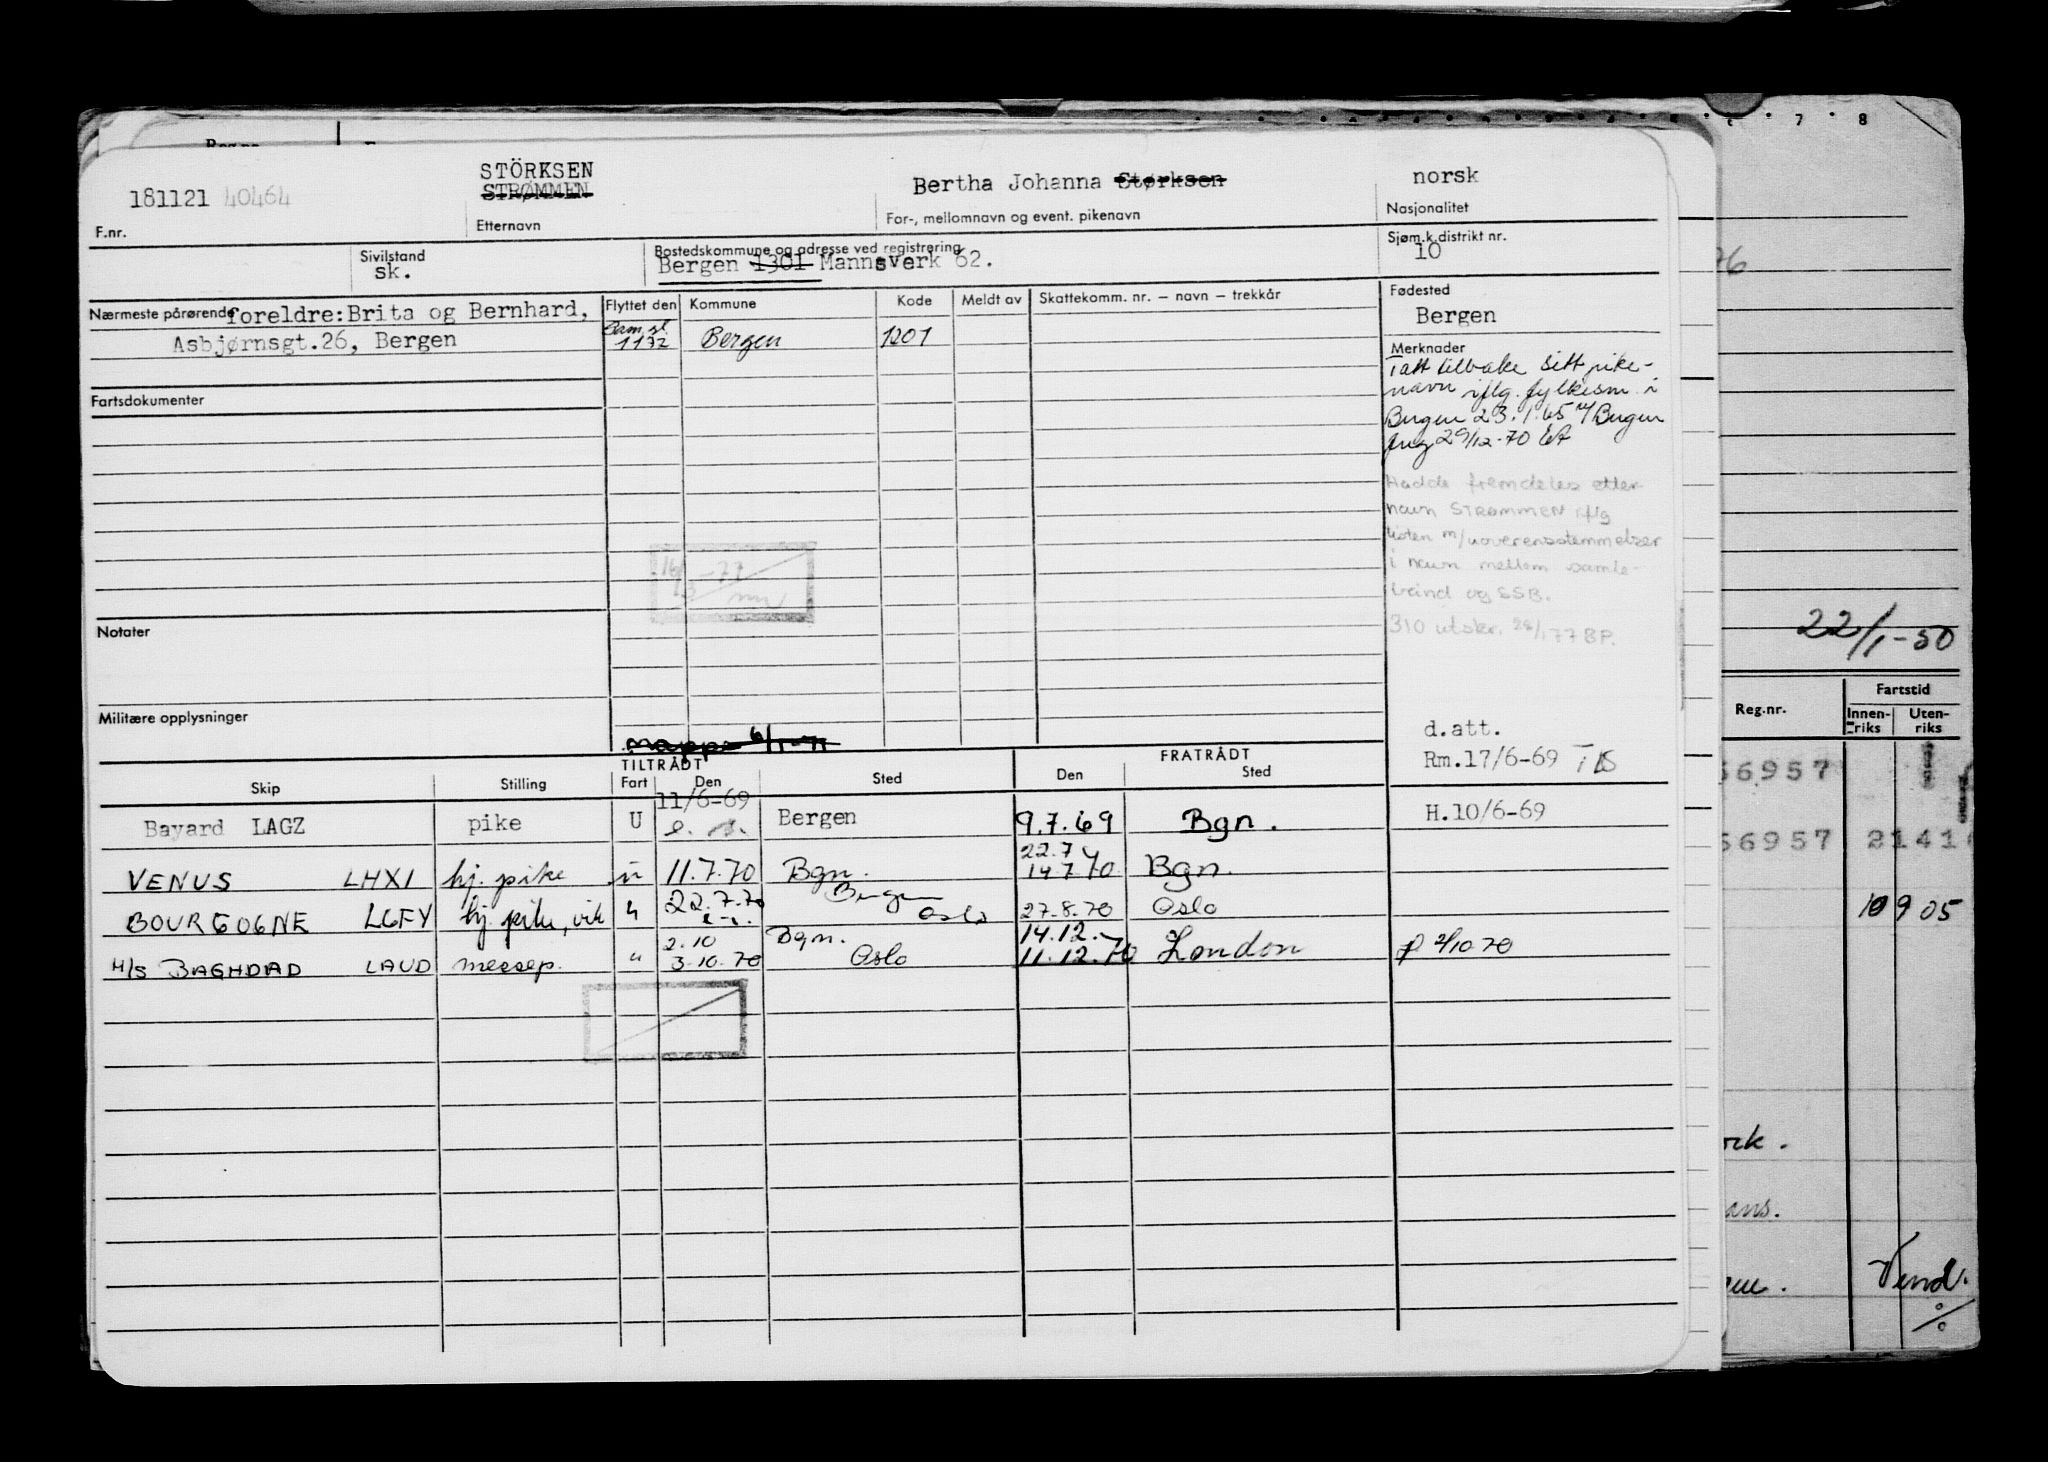 7 8
STÖRKSEN
181121 40464 STRØMMEN Bertha Johanna Størksen norsk
F.nr. Etternavn For-, mellomnavn og event. pikenavn Nasjonalitet
Sivilstand Bostedskommune og adresse ved registrering Sjøm.k.distrikt nr.
sk. Bergen 1301 Mannsverk 62. 10
Nærmeste pårørende foreldre: Brita og Bernhard, Flyttet den Kommune Kode Meldt av Skattekomm. nr. – navn – trekkår Fødested
Bergen
Asbjørnsgt.26, Bergen Sam.sl. 1172 Bergen 1201
Merknader
Tatt tilbake sitt pike-
navn iflg. fylkesm. i
Bergen 23.1.65 m/Bergen
29/12-70
Fartsdokumenter
Hadde fremdeles etter-
navn STRØMMEN iflg
listen m/uoverensstemmelser
i navn mellom samle-
bånd og SSB.
310 utskr. 28/1 77 BP.
-77
Notater
22/1-50
Militære opplysninger
Mappe 6/1-71
d.att.
Rm.17/6-69
Reg.nr. Fartstid
Innen-riks Uten-riks
TILTRÅDT FRATRÅDT
Skip Stilling Fart Den Sted Den Sted
11/6-69
Bayard LAGZ pike U Bergen 9.7.69 Bgn. H.10/6-69
22.7
VENUS LHXI hj. pike u 11.7.70 Bgn. 14.7.70 Bgn.
BOURGOGNE LGFY hj. pike, vik " 22.7.70 Bergen Oslo 27.8.70 Oslo
2.10 Bgn. 14.12.
M/S BAGHDAD LAUD messep. " 3.10.70 Oslo 11.12.70 London 2/10 70
56957
56957 2141
10905
Vend.